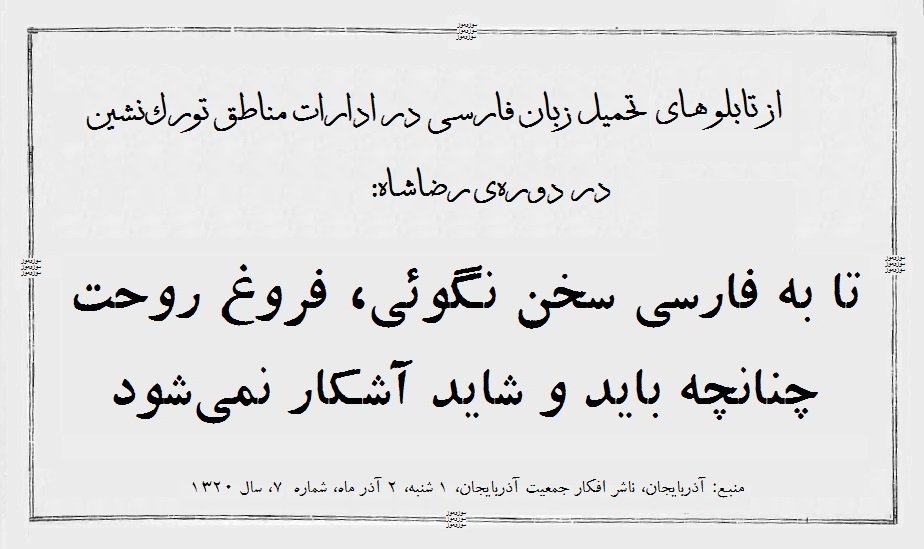 از تابلوهای تحمیل زبان فارسی در ادارات مناطق تورک‌نشین
در دوره‌ی رضاشاه:
تا به فارسی سخن نگوئی، فروغ روحت
چنانچه باید و شاید آشکار نمی‌شود
منبع: آذربایجان، ناشر افکار جمعیت آذربایجان، ۱ شنبه، ۲ آذر ماه، شماره ۷، سال ۱۳۲۰